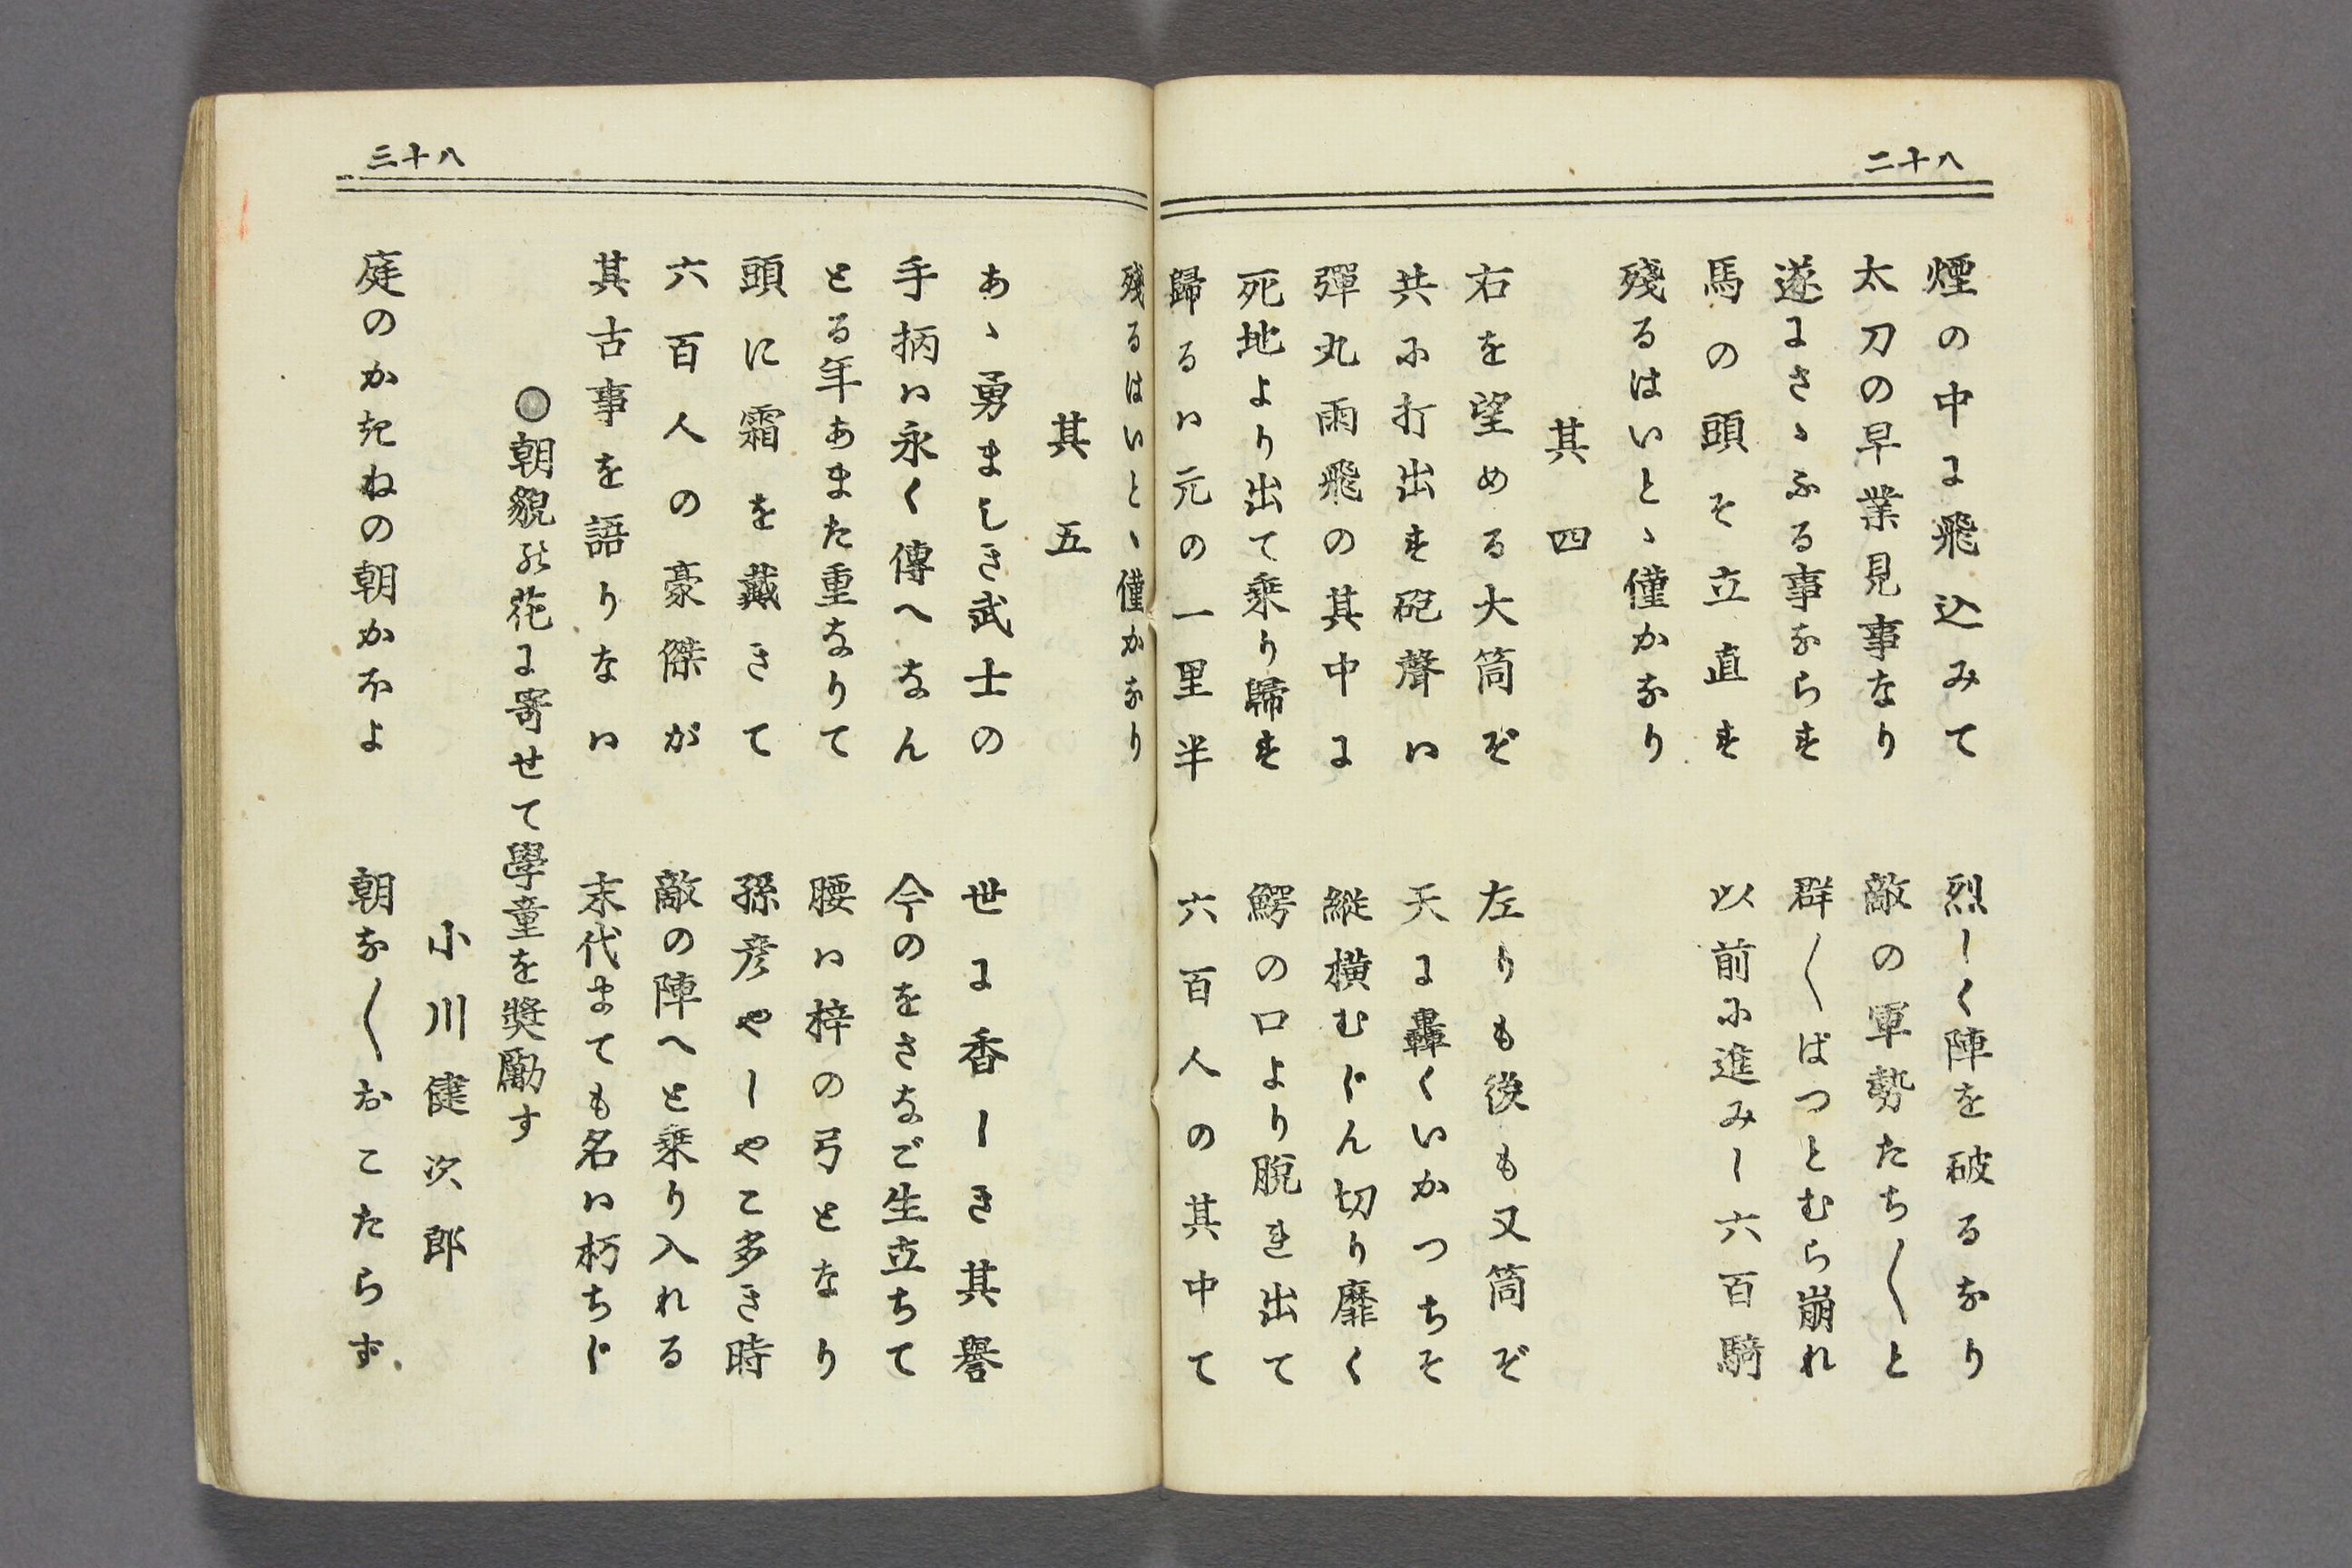 八十二
煙の中に飛込みて　烈しく陣を破るなり
太刀の早業見事なり　敵の軍勢たち〱と
遂にさゝふる事ならず　群〱ばつとむら崩れ
馬の頭を立直す　以前に進みし六百騎
殘るはいとゝ僅かなり
其四
右を望める大筒ぞ　左りも後も又筒ぞ
共に打出す砲聲は　天に轟くいかつちぞ
彈丸雨飛の其中に　縱横むじん切り靡く
死地より出て乘り歸す　鰐の口より脱れ出て
歸るは元の一里半　六百人の其中て
八十三
殘るはいとゝ僅かなり
其五
あゝ勇ましき武士の　世に香しき其譽
手柄は永く傳へなん　今のをさなご生立ちて
とる年あまた重なりて　腰は梓の弓となり
頭に霜を戴きて　孫彦やしやこ多き時
六百人の豪傑が　敵の陣へと乘り入れる
其古事を語りなは　末代までも名は朽ちじ
○朝貌の花に寄せて學童を奬勵す
小川健次郎
庭のかきねの朝かほよ　朝な〱おこたらず